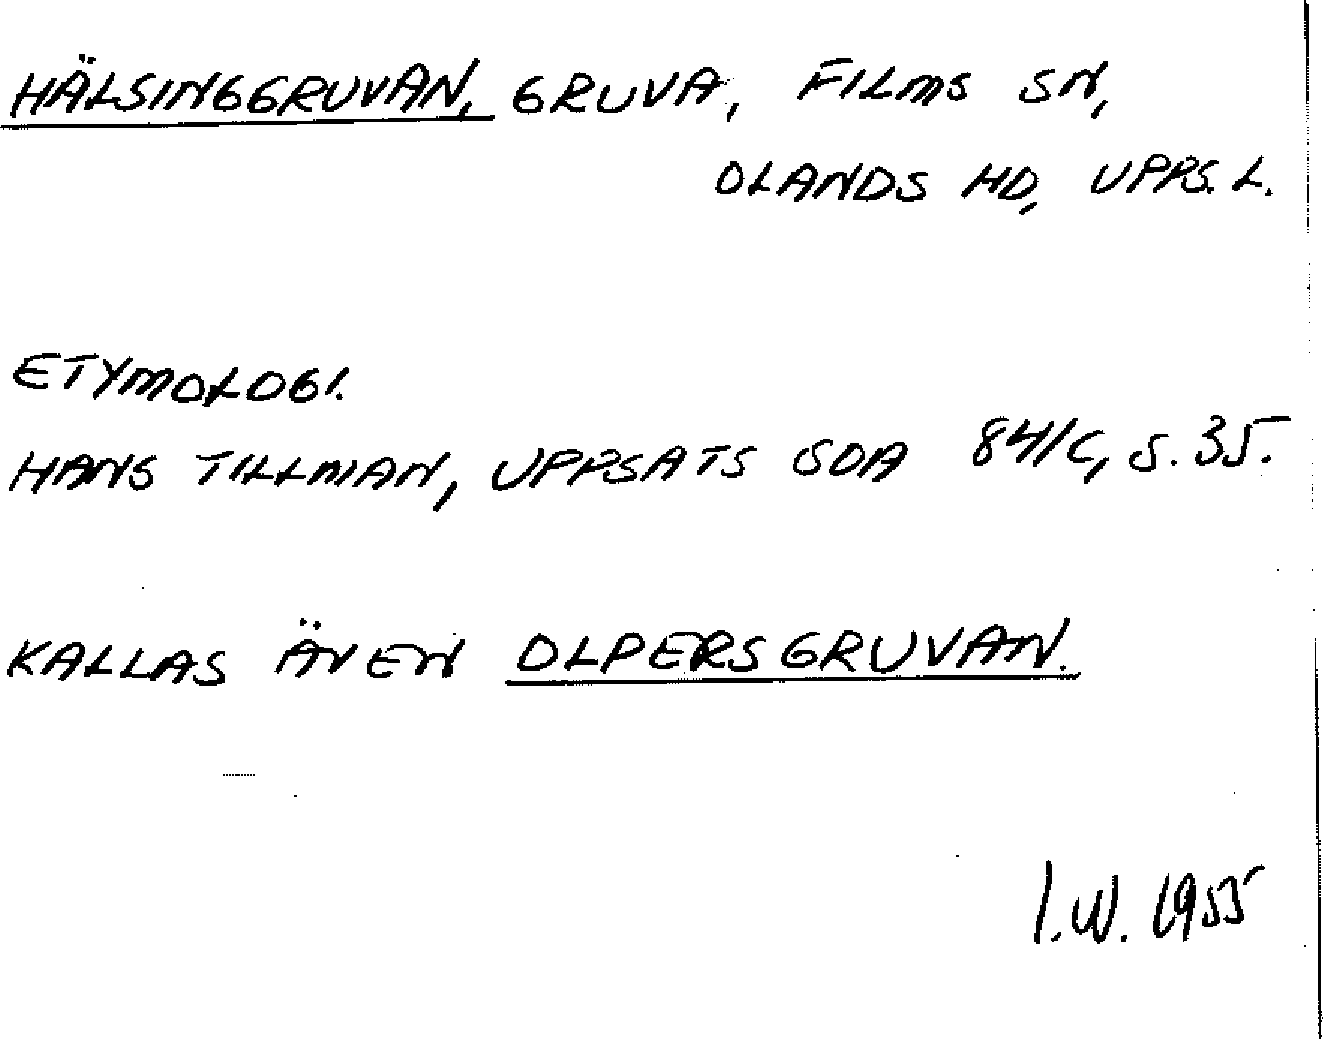 HÄLSINGGRUVAN, GRUVA, FILMS SN,
OLANDS HD, UPPS. L.
ETYMOLOGI.
HANS TILLMAN, UPPSATS SOA 841C, S. 35.
KALLAS ÄVEN OLPERSGRUVAN.
I.W. 1955